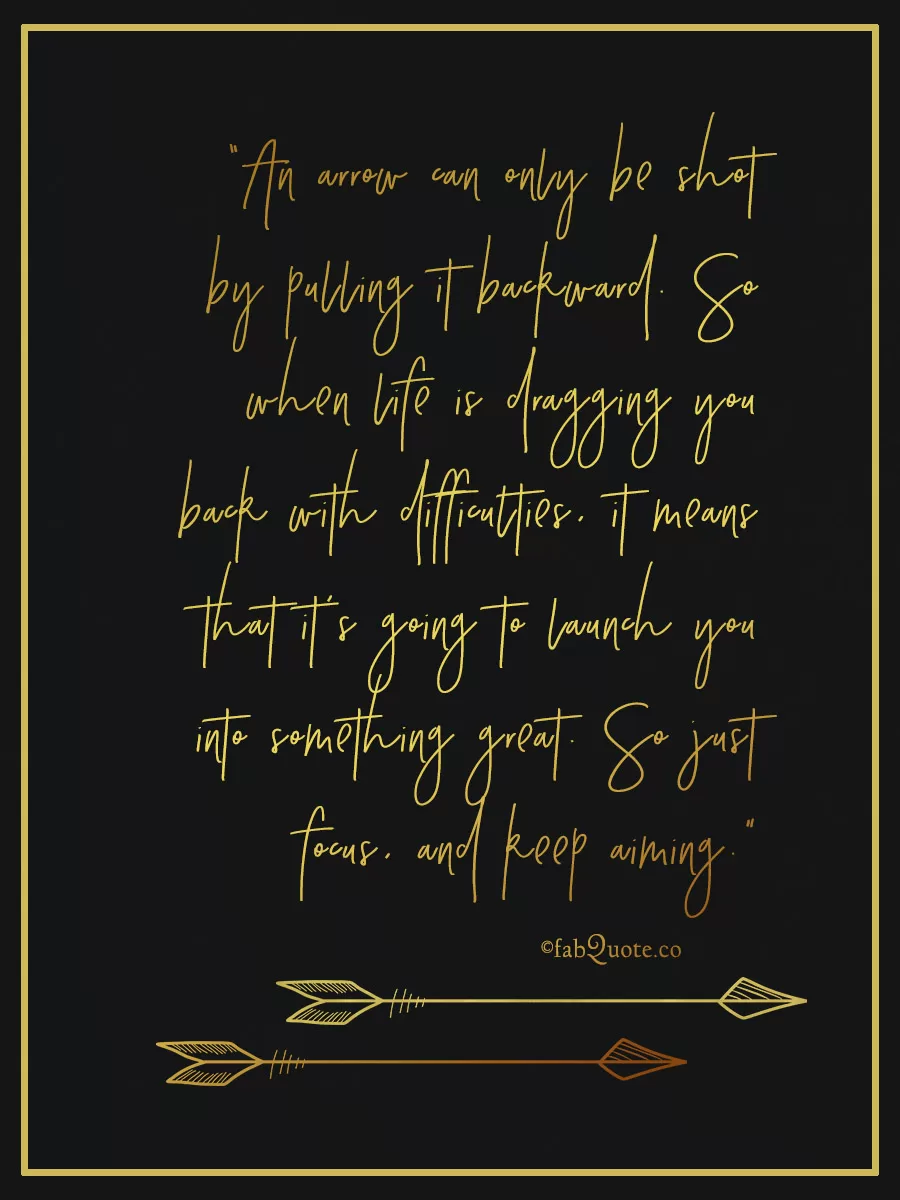 "An arrow can only be shot
by pulling it backward. So
when life is dragging you
back with difficulties, it means
that it's going to launch you
into something great. So just
focus, and keep aiming."
©fabQuote.co